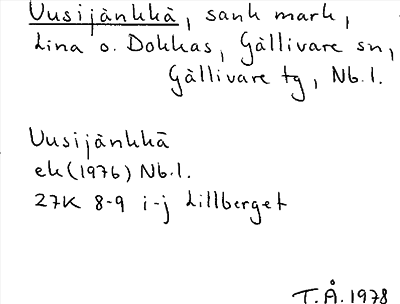 Uusijänkkä, sank mark,
Lina o. Dokkas, Gällivare sn,
Gällivare tg, Nb.l.
Uusijänkkä
ek (1976) Nb.l.
27K 8-9 i-j Lillberget
T.Å. 1978